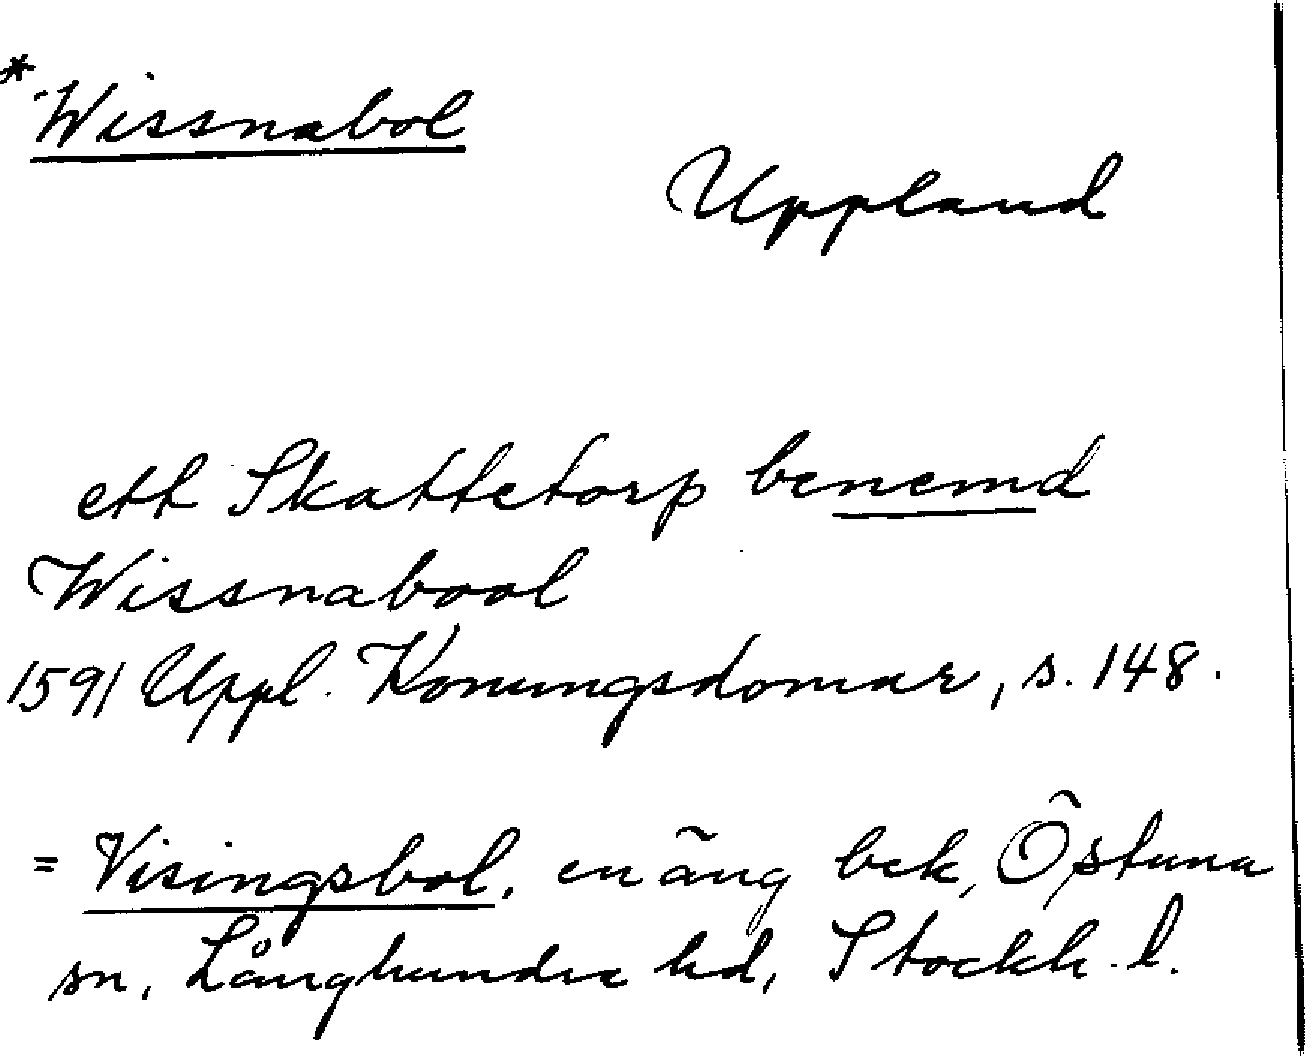 * Wissnabol
Uppland
ett Skattetorp benemd
Wissnabool
1591 Uppl. Konungsdomar, s. 148.
= Visingsbol, en äng bek, Östuna
sn, Långhundra hd, Stockh. l.